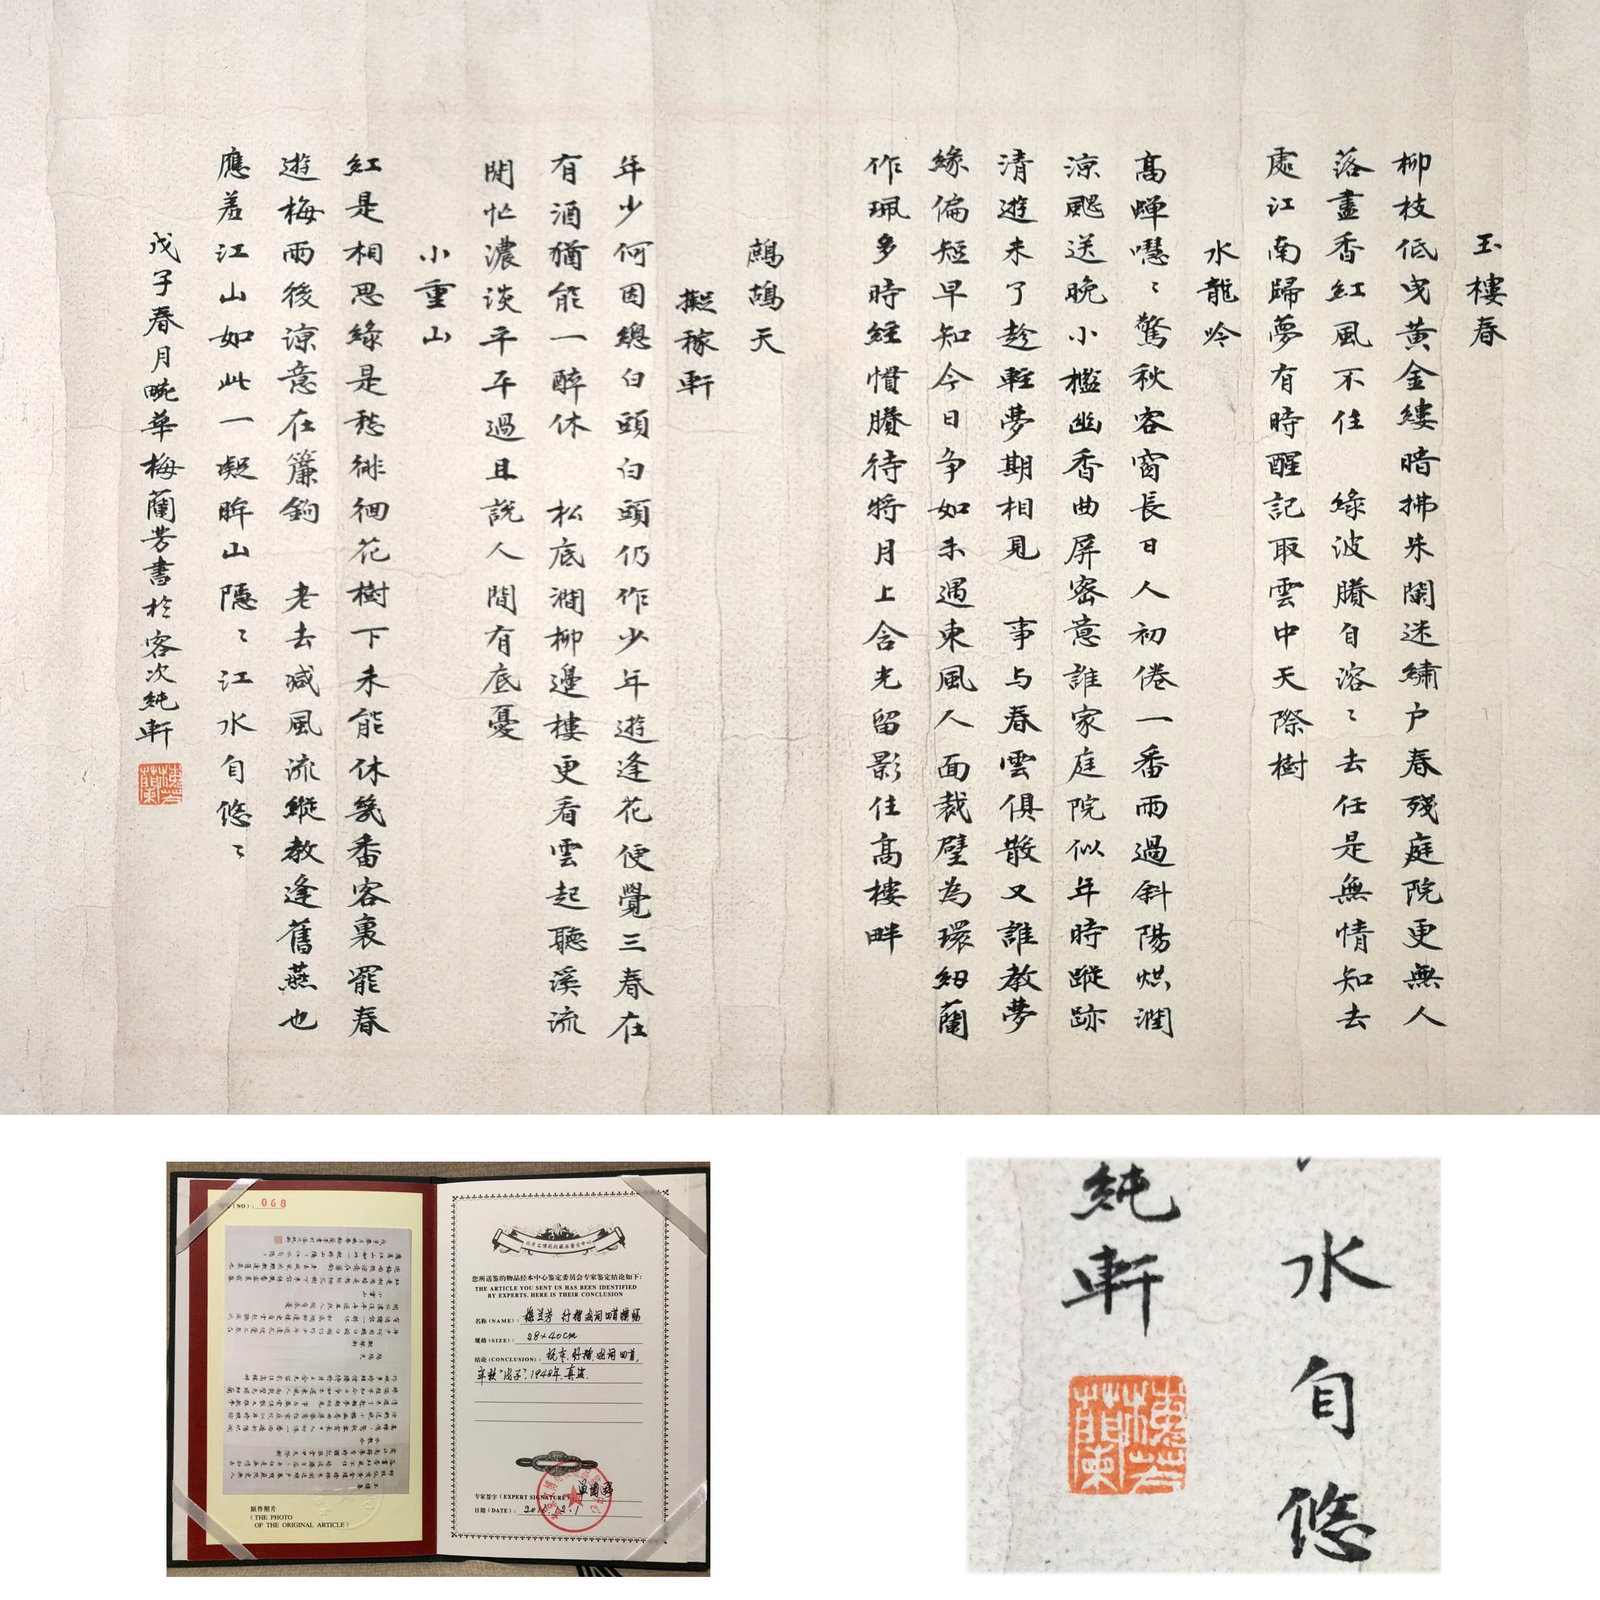 玉樓春
柳枝低曳黃金縷暗拂朱闌迷繡户春殘庭院更無人
落盡香紅風不住 綠波賸自溶〻去任是無情知去
處江南歸夢有時醒記取雲中天際樹
水龍吟
高蟬嘒〻驚秋容窗長日人初倦一番雨過斜陽烘潤
涼颸送晚小檻幽香曲屏密意誰家庭院似年時蹤跡
清遊未了趁輕夢期相見 事与春雲俱散又誰教夢
緣偏短早知今日争如未遇東風人面裁璧為環紉蘭
作珮多時經慣賸待將月上含光留影住高樓畔
鷓鴣天
擬稼軒
年少何因總白頭白頭仍作少年遊逢花便覺三春在
有酒猶能一醉休 松底澗柳邊樓更看雲起聽溪流
閒忙濃淡平平過且說人間有底憂
小重山
紅是相思綠是愁徘徊花樹下未能休幾番客裏罷春
遊梅雨後涼意在簾鉤 老去減風流縱教逢舊燕也
應羞江山如此一凝眸山隱〻江水自悠〻
戊子春月畹華梅蘭芳書於客次純軒
梅蘭芳
(NO): 068
您所送鉴的物品经本中心鉴定委员会专家鉴定结论如下:
THE ARTICLE YOU SENT US HAS BEEN IDENTIFIED
BY EXPERTS. HERE IS THEIR CONCLUSION
名称(NAME): 梅兰芳 行楷
规格(SIZE): 28×40cm
结论(CONCLUSION): 行楷
1948年
专家签字(EXPERT SIGNATURE)
日期(DATE):
原件照片
(THE PHOTO
OF THE ORIGINAL ARTICLE)
水自悠
純軒